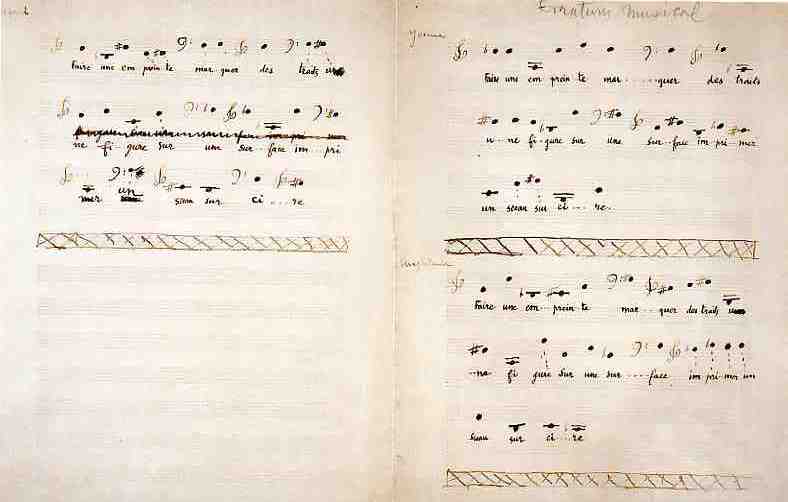 Faire une em prein te mar quer des traits
ne fi gure sur une sur face im pri
mer un sceau sur ci ... re
Erratum Musical
Yvonne
Faire une em prein te mar ..... quer des traits
u .. ne fi gure sur une sur .. face im pri mer
un sceau sur ci ... re.
Magdeleine
Faire une em .. prein te mar ... quer des traits
ne fi gure sur une sur .... face im pri mer un
sceau sur ci .. re